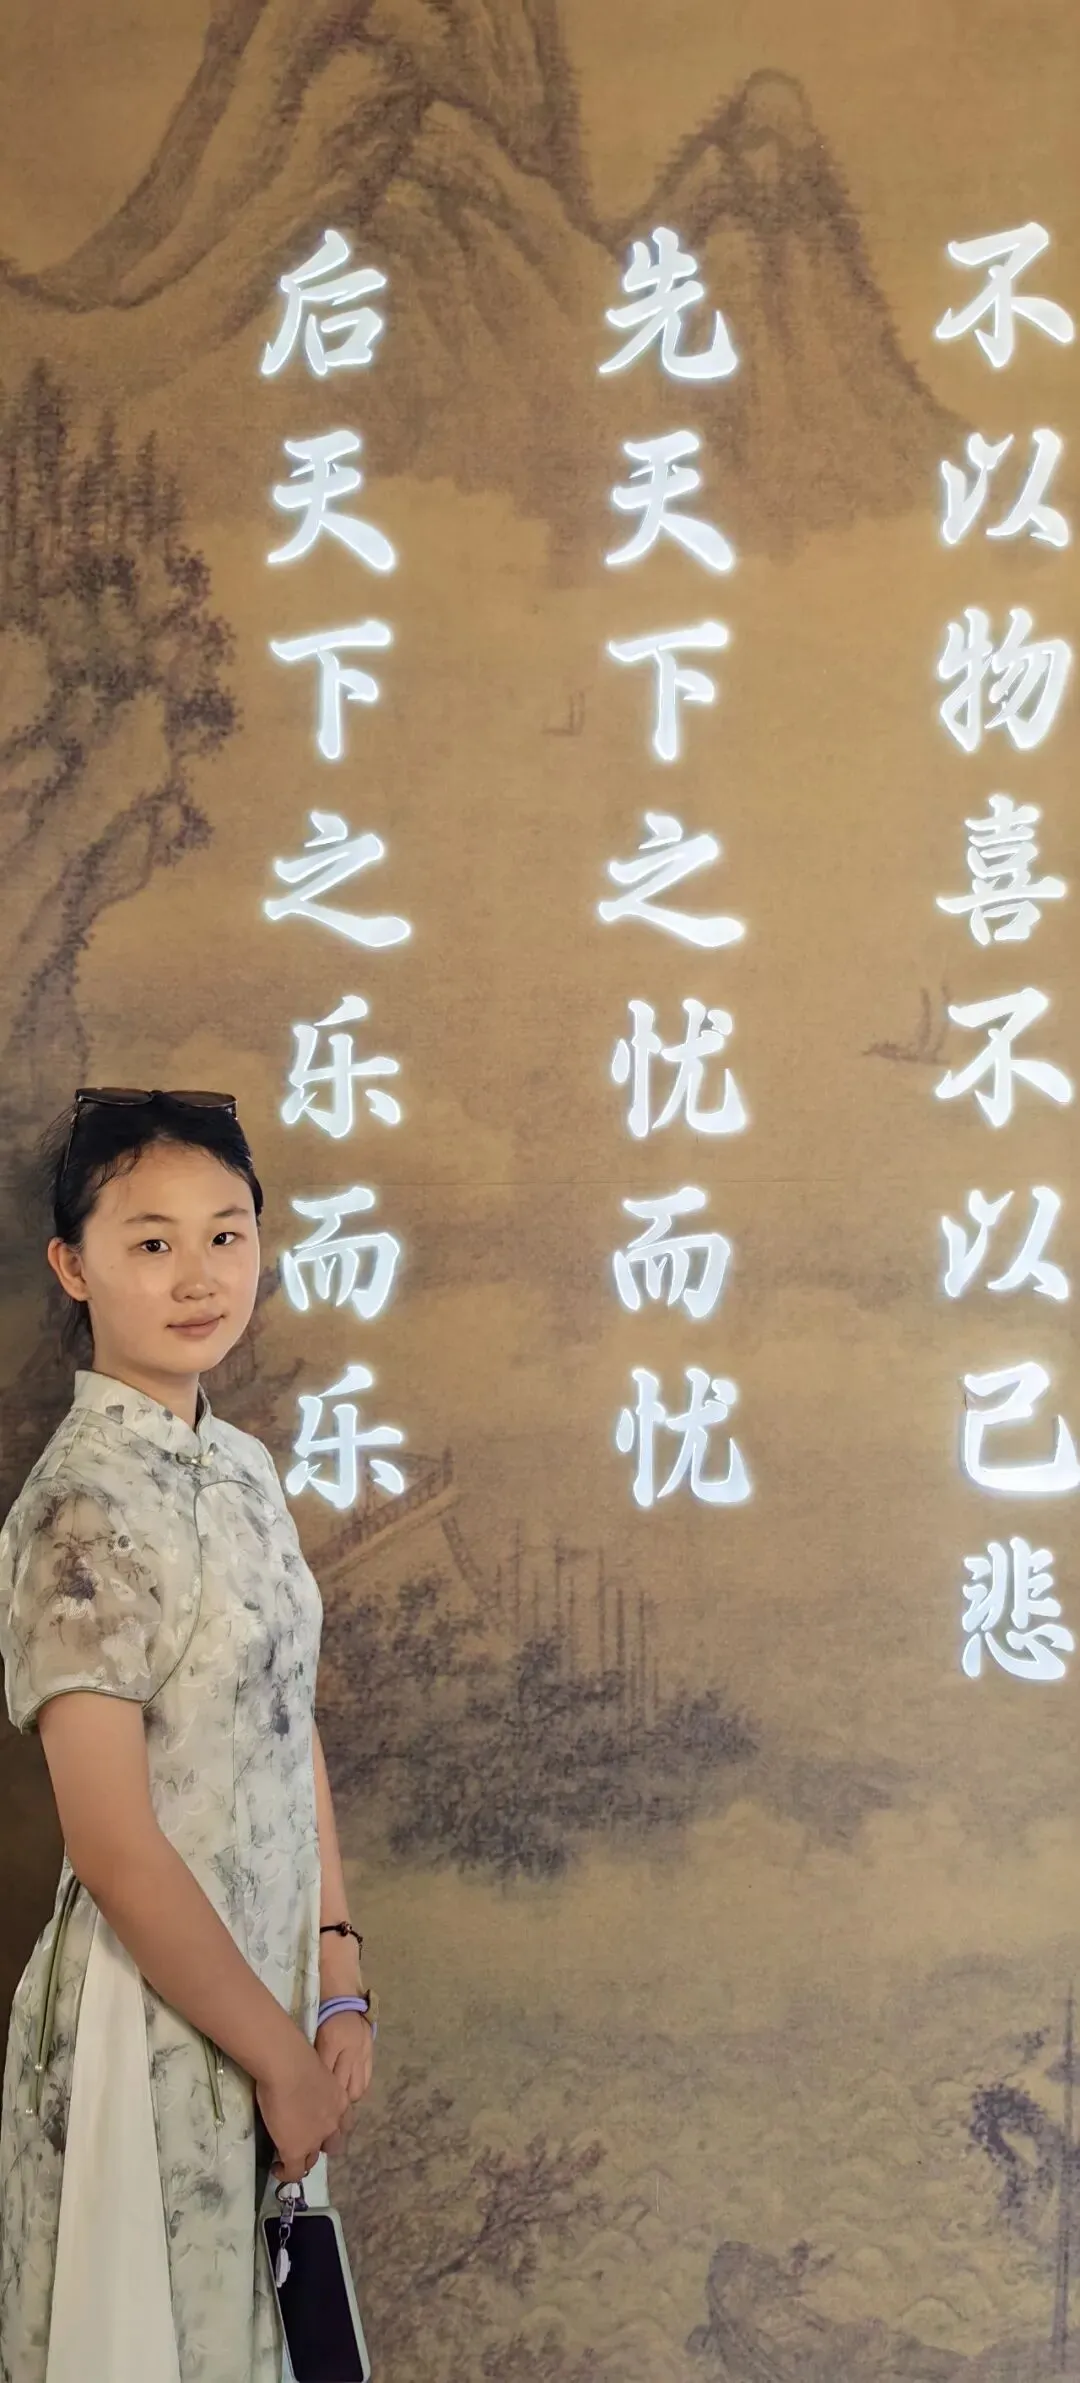 不以物喜不以己悲
先天下之忧而忧
后天下之乐而乐